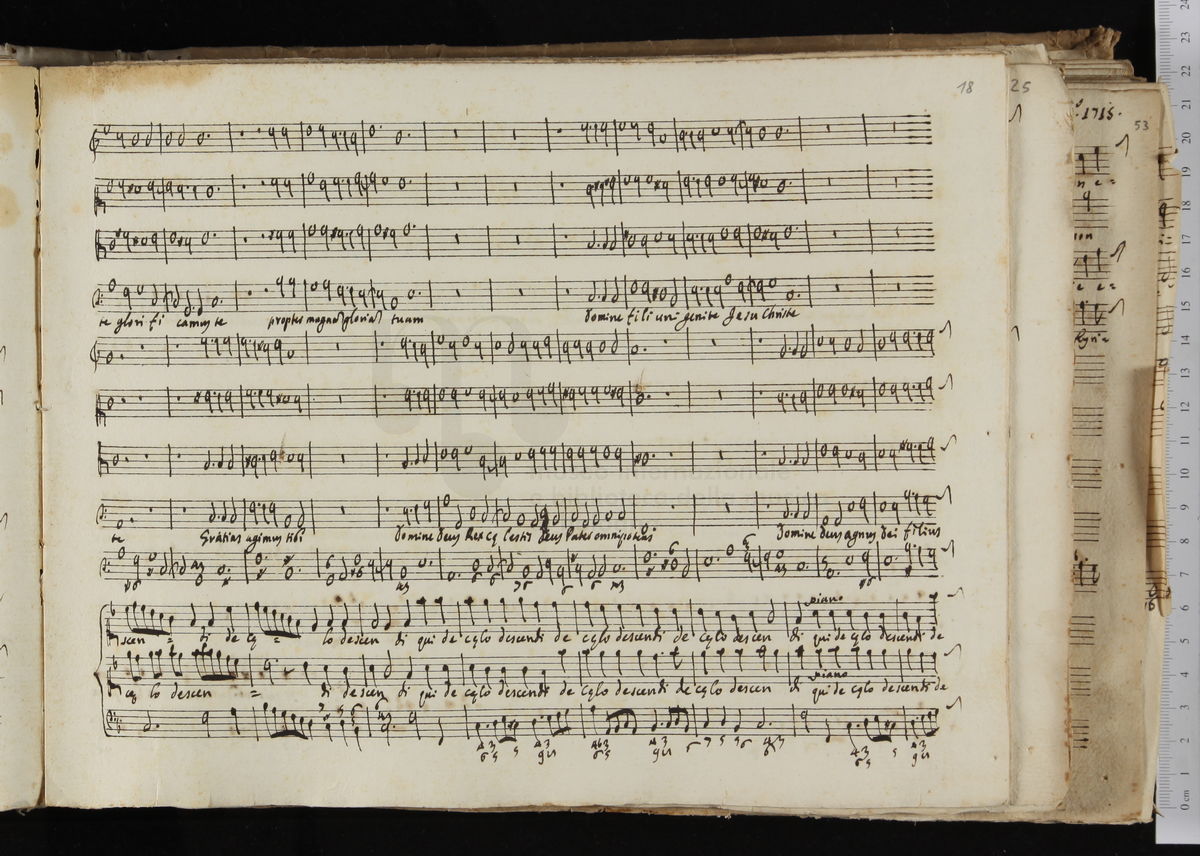 18
25
1715.
53
te glori fi camus te propter magnã gloriã tuam Domine fili uni genite Jesu Christe
te Gratias agimus tibi Domine Deus Rex cę lestis Deus Pater omnipotens Domine deus agnus dei filius
piano
scen = di de cę = lo descen di qui de cęlo descendi de cęlo descendi de cęlo descen di qui de cęlo descendi de
piano
cę lo descen = di descen di qui de cęlo descendi de cęlo descendi de cęlo descen di qui de cęlo descendi de